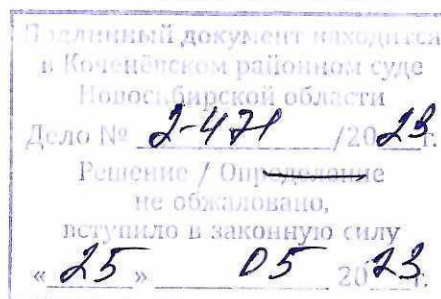 Подлинный документ находится
в Коченёвском районном суде
Новосибирской области
Дело № 2-471 /2023г.
Решение / Определение
не обжаловано,
вступило в законную силу
« 25 » 05 2023г.